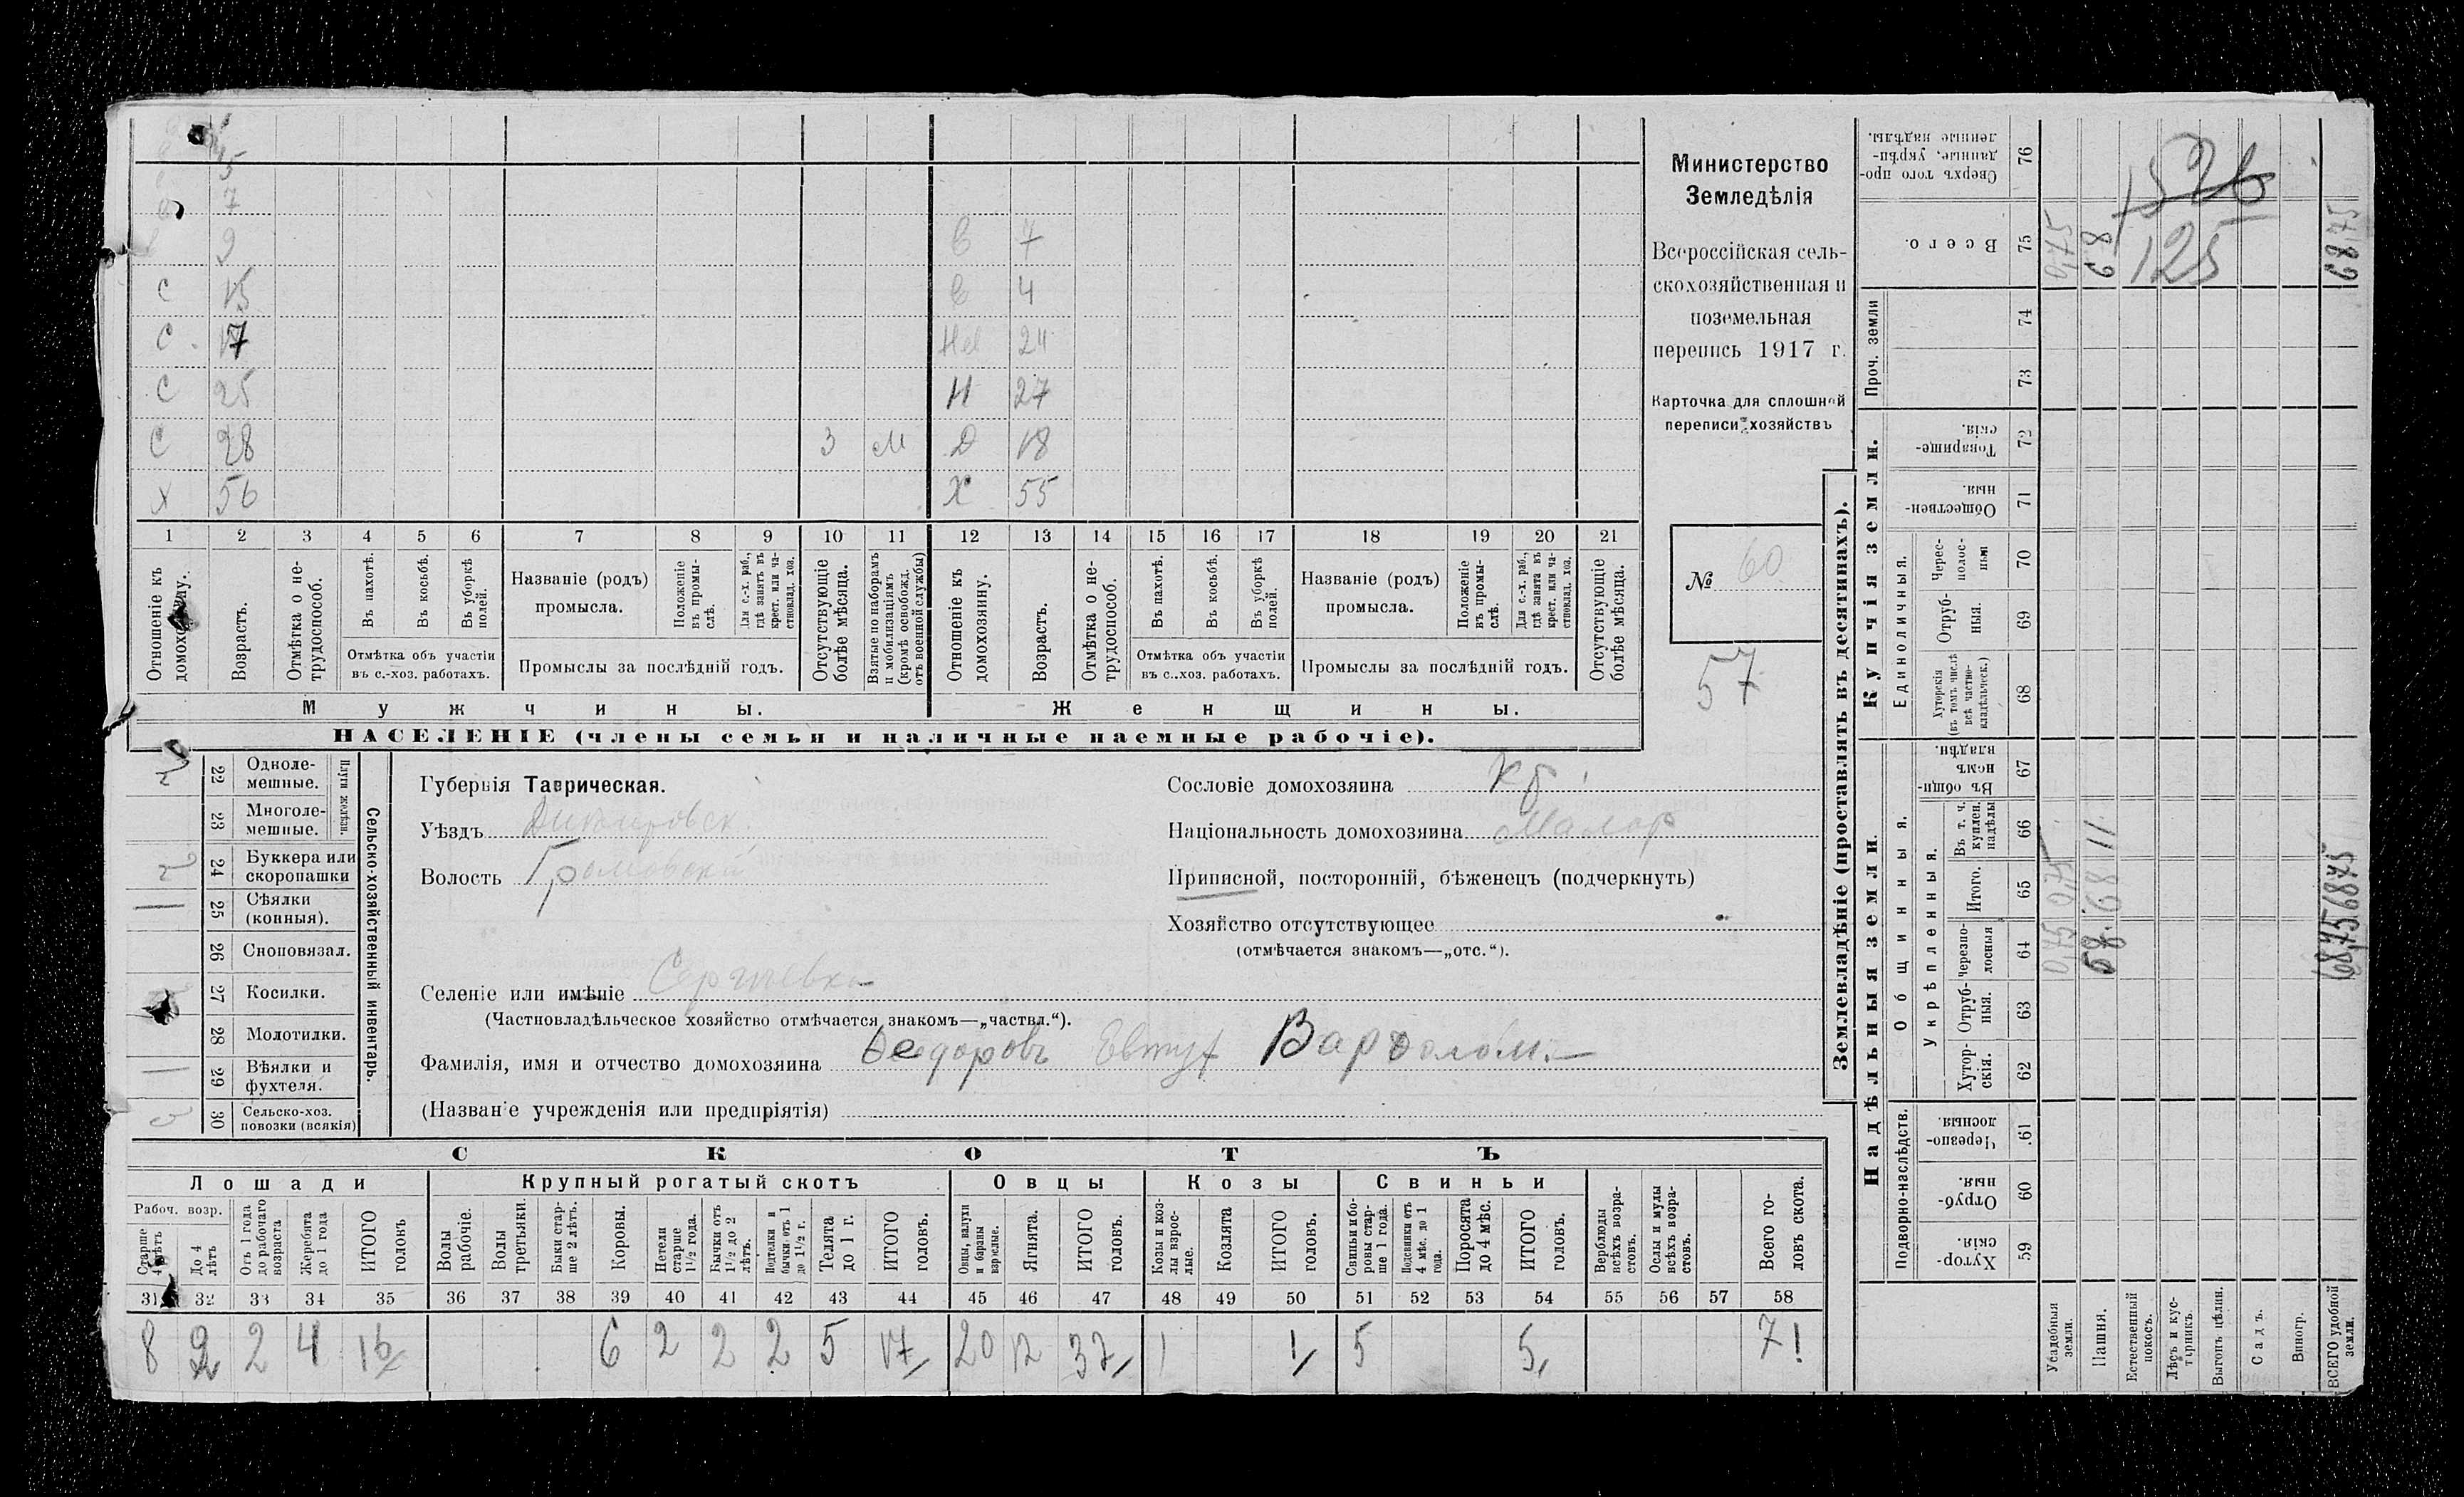 5
7
9 в 7
с 15 в 4
с 17 Нев 24
с 25 Н 27
с 28 3 м Д 18
х 56 Х 55
1 2 3 4 5 6 7 8 9 10 11 12 13 14 15 16 17 18 19 20 21
Отношеніе къ домохозяину.
Возрастъ.
Отмѣтка о нетрудоспособ.
Въ пахотѣ.
Въ косьбѣ.
Въ уборкѣ полей.
Отмѣтка объ участіи
въ с.-хоз. работахъ.
Названіе (родъ)
промысла.
Положеніе въ промыслѣ.
Для с.-х. раб., гдѣ занятъ въ крест. или частновлад. хоз.
Промыслы за послѣдній годъ.
Отсутствующіе болѣе мѣсяца.
Взятые по наборамъ и мобилизаціямъ (кромѣ освобожд. отъ военной службы)
Отношеніе къ домохозяину.
Возрастъ.
Отмѣтка о нетрудоспособ.
Въ пахотѣ.
Въ косьбѣ.
Въ уборкѣ полей.
Отмѣтка объ участіи
въ с..хоз. работахъ.
Названіе (родъ)
промысла.
Положеніе въ промыслѣ.
Для с.-х. раб., гдѣ занята въ крест. или частновлад. хоз.
Промыслы за послѣдній годъ.
Отсутствующіе болѣе мѣсяца.
Мужчины. Женщины.
НАСЕЛЕНІЕ (члены семьи и наличные наемные рабочіе).
Министерство
Земледѣлія
Всероссійская сель-
скохозяйственная и
поземельная
перепись 1917 г.
Карточка для сплошной
переписи хозяйствъ
№ 60
57
Сельско-хозяйственный инвентарь.
Плуги желѣзн.
2 22 Одноле-
мешные.
23 Многоле-
мешные.
2 24 Буккера или
скоропашки
1 25 Сѣялки
(конныя).
26 Сноповязал.
27 Косилки.
28 Молотилки.
1 29 Вѣялки и
фухтеля.
30 Сельско-хоз.
повозки (всякія)
Губернія Таврическая.
Уѣздъ Днѣпровск
Волость Громовской
Селеніе или имѣніе Сергѣевка
(Частновладѣльческое хозяйство отмѣчается знакомъ—„частвл.“).
Фамилія, имя и отчество домохозяина Федоровъ Евтух Варфолом.
(Названіе учрежденія или предпріятія)
Сословіе домохозяина кр.
Національность домохозяина Малор
Приписной, посторонній, бѣженецъ (подчеркнуть)
Хозяйство отсутствующее
(отмѣчается знакомъ—„отс.“).
СКОТЪ
Лошади Крупный рогатый скотъ Овцы Козы Свиньи
Рабоч. возр.
Старше 4 лѣтъ
До 4 лѣтъ
Отъ 1 года до рабочаго возраста
Жеребята до 1 года
ИТОГО головъ
Волы рабочіе.
Волы третьяки.
Быки старше 2 лѣтъ.
Коровы.
Нетели старше 1½ года.
Бычки отъ 1½ до 2 лѣтъ.
Подтелки и бычки отъ 1 до 1½ г.
Телята до 1 г.
ИТОГО головъ.
Овцы, валухи и бараны взрослые.
Ягнята.
ИТОГО головъ.
Козы и козлы взрослые.
Козлята
ИТОГО головъ.
Свиньи и боровы старше 1 года.
Подсвинки отъ 4 мѣс. до 1 года.
Поросята до 4 мѣс.
ИТОГО головъ.
Верблюды всѣхъ возрастовъ.
Ослы и мулы всѣхъ возрастовъ.
Всего головъ скота.
31 32 33 34 35 36 37 38 39 40 41 42 43 44 45 46 47 48 49 50 51 52 53 54 55 56 57 58
8 2 2 4 16 6 2 2 2 5 17 20 12 32 1 1 5 5 71
Землевладѣніе (проставлять въ десятинахъ).
Надѣльныя земли. Купчія земли. Проч. земли
Подворно-наслѣдств. Общинныя. Единоличныя.
Укрѣпленныя.
59 Хуторскія.
60 Отрубныя.
61 Черезполосныя.
62 Хуторскія.
63 Отрубныя.
64 Черезполосныя
65 Итого.
66 Въ т. ч. куплен. надѣлы
67 Въ общинномъ владѣн.
68 Хуторскія (въ томъ числѣ всѣ частновладѣльческ.)
69 Отрубныя.
70 Черезполосныя
71 Общественныя.
72 Товарищескія.
73
74
75 Всего.
76 Сверхъ того проданные, укрѣпленные надѣлы.
Усадебныя земли. 0,75 0,75 0,75
Пашня. 68 68 11 68
Естественный покосъ.
Лѣсъ и кустарникъ.
Выгонъ цѣлин.
Садъ.
Виногр.
ВСЕГО удобной земли. 68,75 68,75 68,75
1526
125